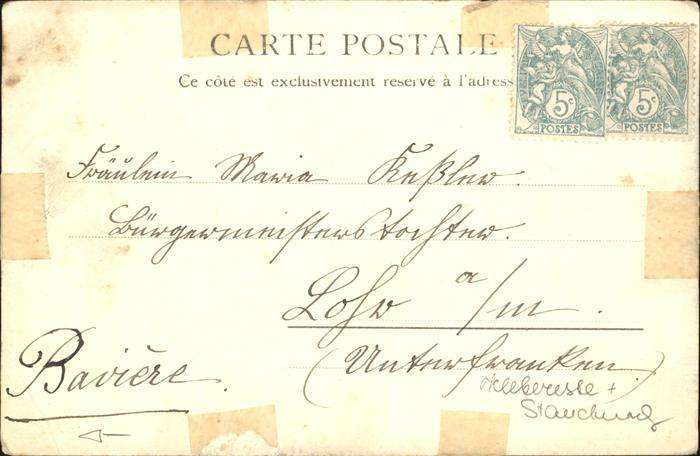 CARTE POSTALE
Ce côté est exclusivement reservé à l'adress
5c
POSTES
5c
POSTES
Fräulein Maria Keßler.
Bürgermeisterstochter.
Lohr a/m.
(Unterfranken.)
Bavière.
Klebereste +
Stauchung